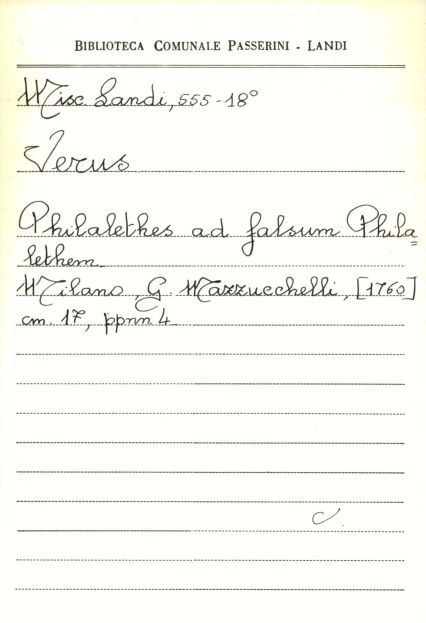 BIBLIOTECA COMUNALE PASSERINI - LANDI
Misc. Landi, 555-18°
Verus
Philalethes ad falsum Phila=
lethem.
Milano, G. Mazzucchelli, [1760]
cm. 17, ppnn. 4